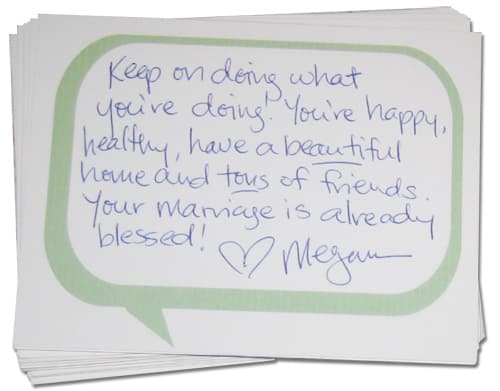 Keep on doing what
you're doing! You're happy,
healthy, have a beautiful
home and tons of friends.
Your marriage is already
blessed!
♡ Megan